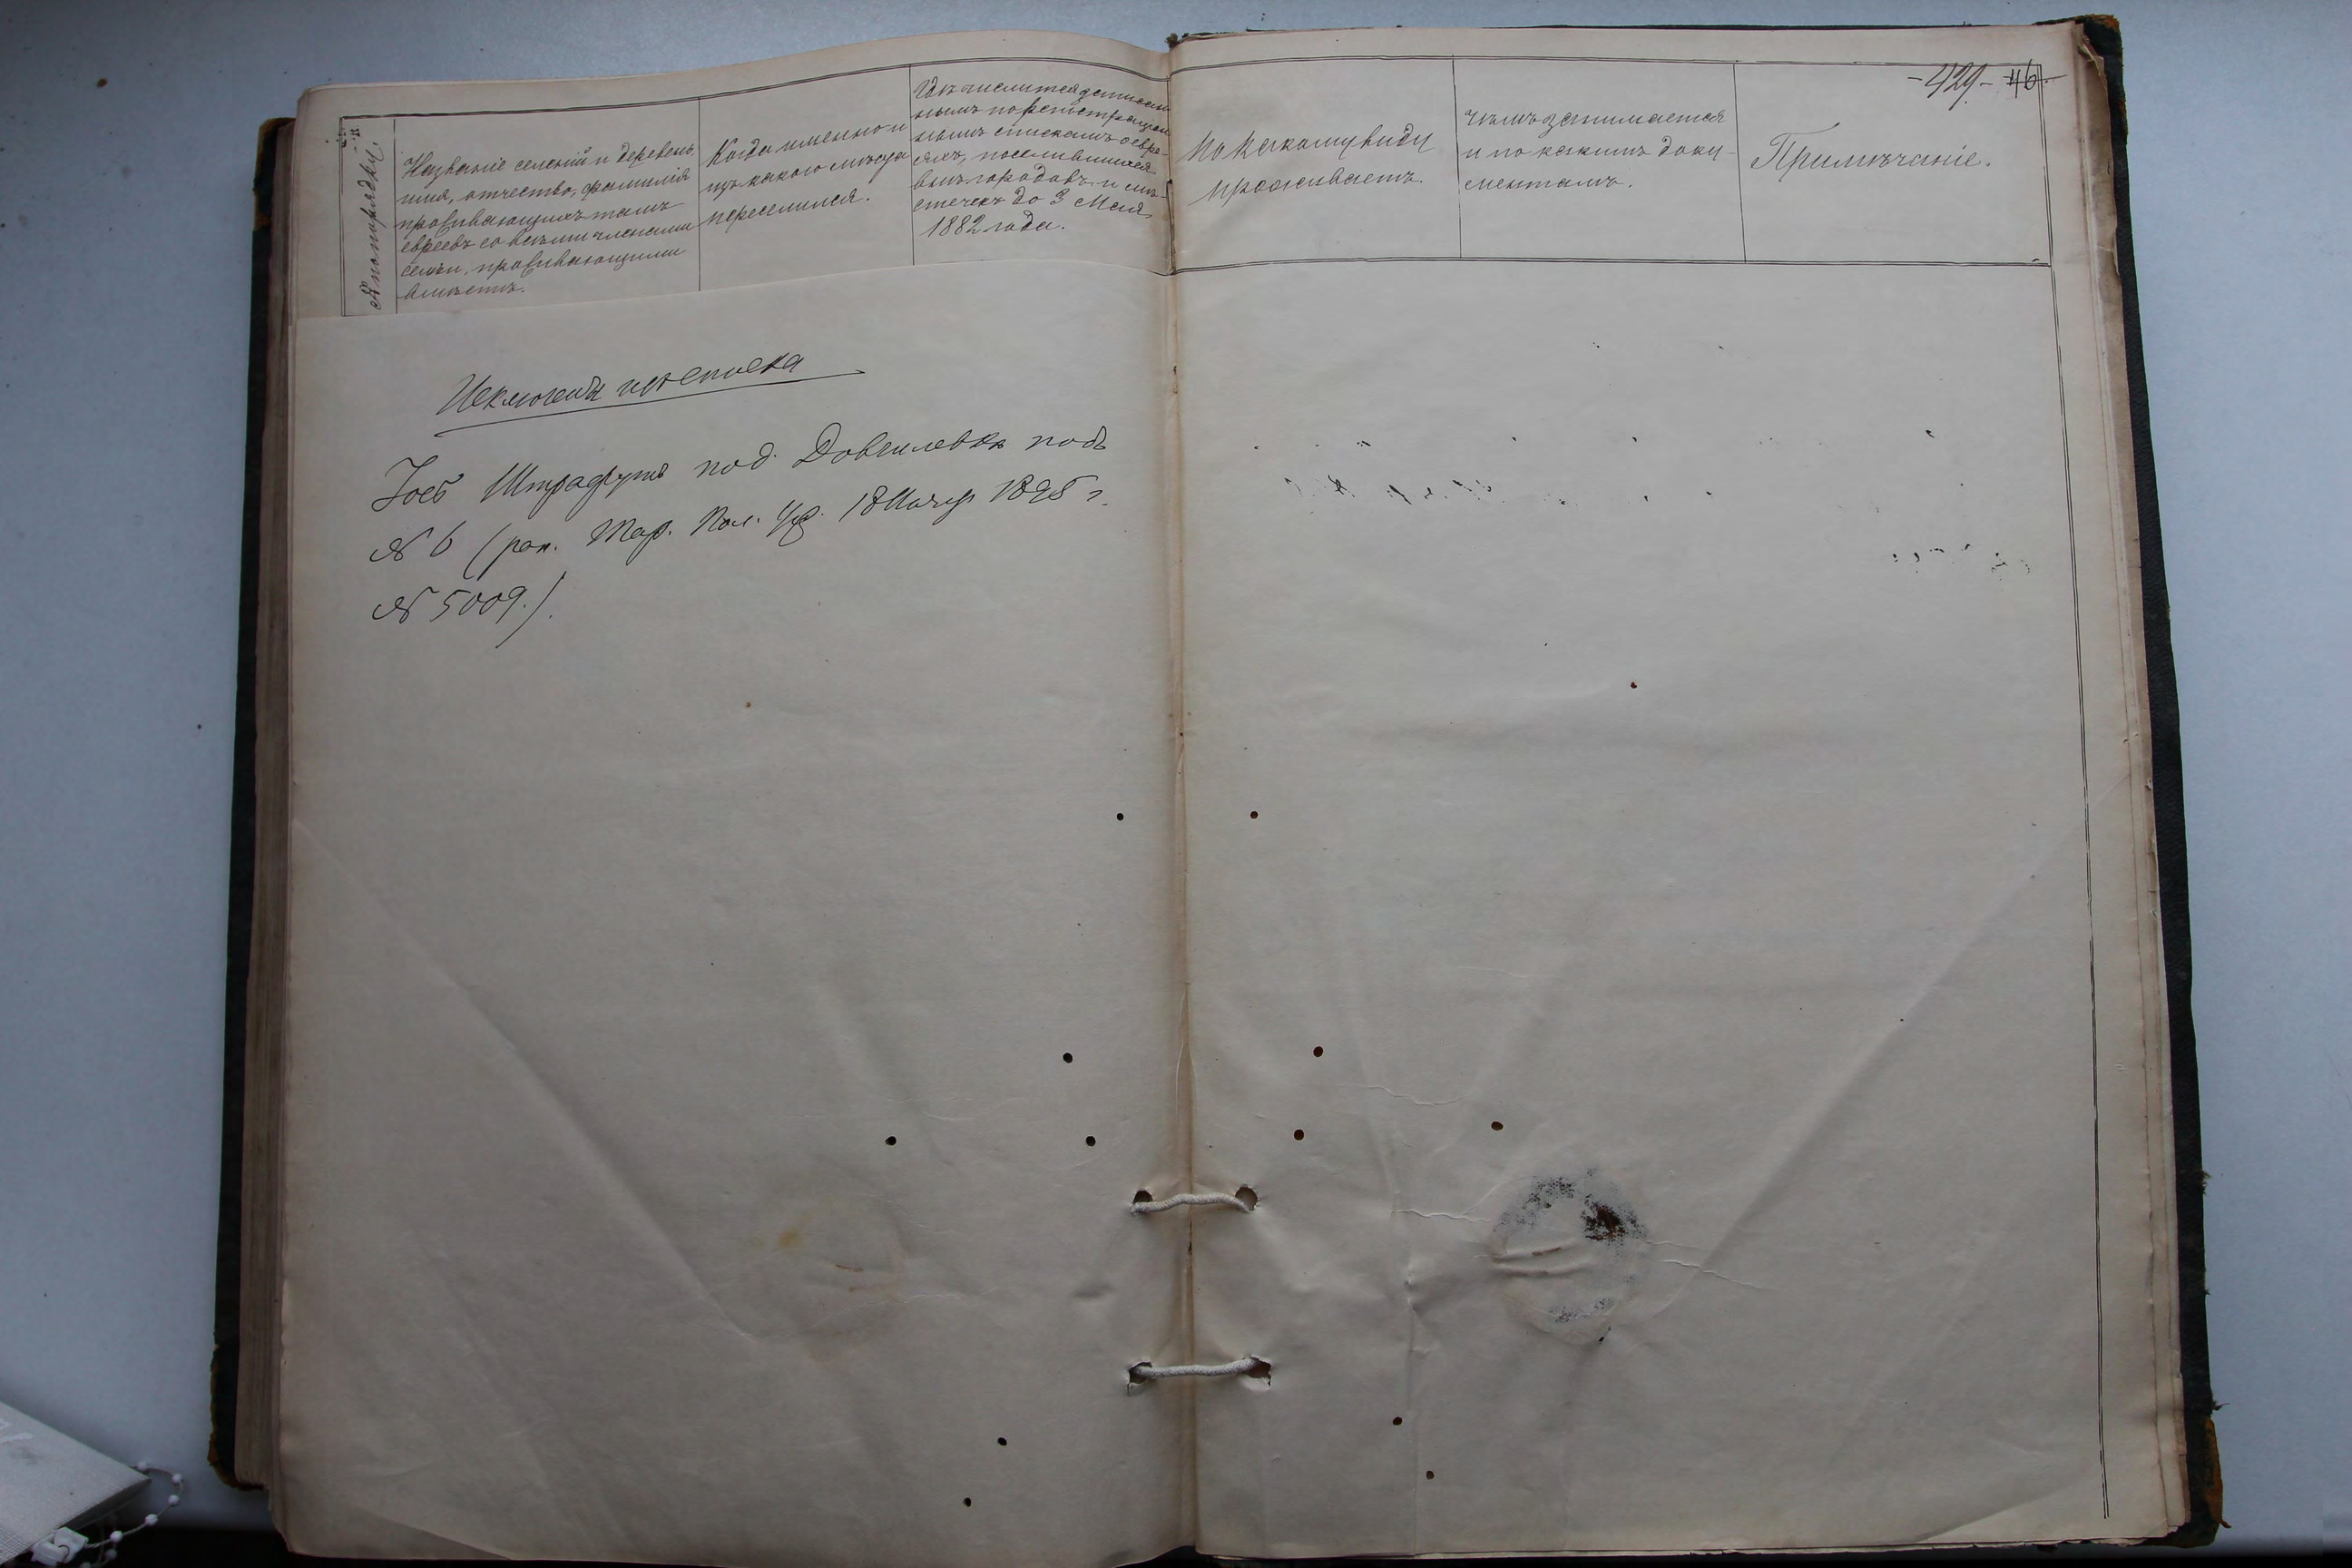 -429- 46.
№ по порядку.
Названіе селеній и деревень,
имя, отчество, фамилія
проживающихъ тамъ
евреевъ со всѣми членами
семьи, проживающими
вмѣстѣ.
Когда именно и
изъ какого мѣста
переселился.
Гдѣ числится записан
нымъ по регистрацiон
нымъ спискамъ о евре-
яхъ, поселившихся
внѣ городовъ и мѣ-
стечекъ до 3 Мая
1882 года.
По какому виду
проживаетъ.
Чѣмъ занимается
и по какимъ доку-
ментамъ.
Примѣчаніе.
Исключены изъ списка
Іось Штрафунъ под. Довгилевка подъ
№ 6 (рап. Тар. Пол. Упр. 18 1898 г.
№ 5009.).